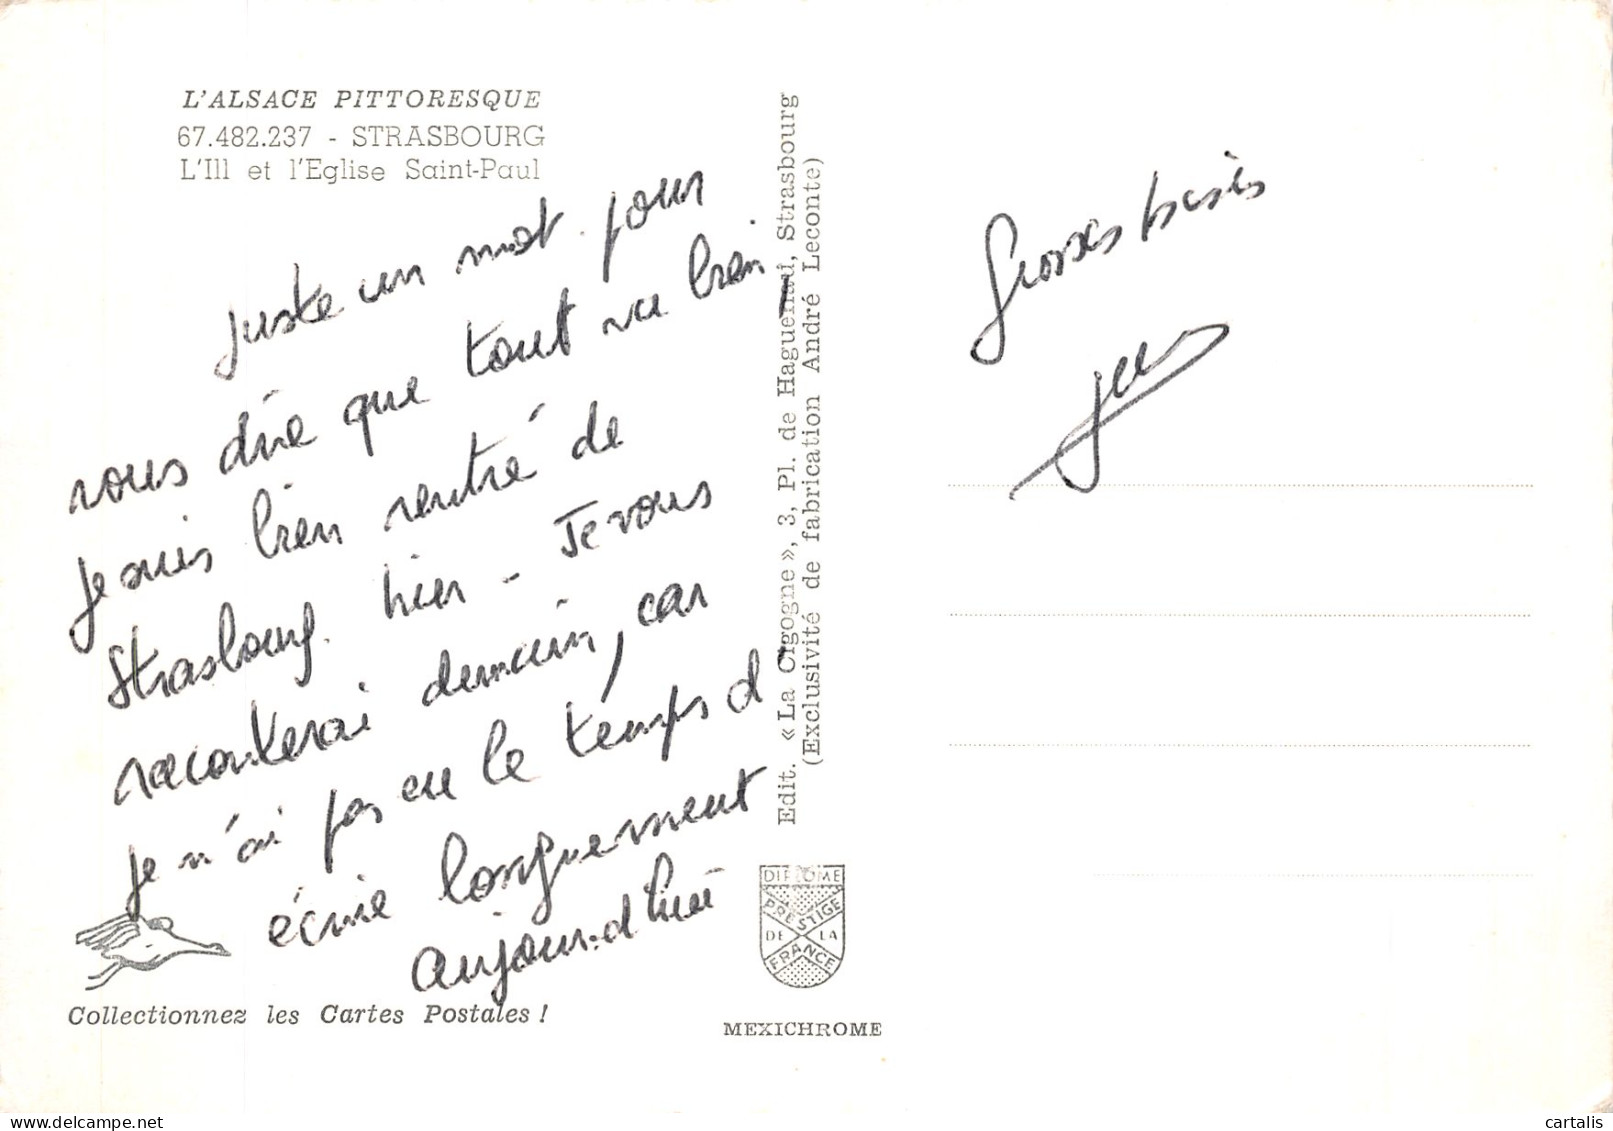 L'ALSACE PITTORESQUE
67.482.237 - STRASBOURG
L'Ill et l'Eglise Saint-Paul
Juste un mot pour
vous dire que tout va bien
Je suis bien rentré de
Strasbourg hier - Je vous
raconterai demain, car
je n'ai pas eu le temps d'
écrire longuement
aujourd'hui
Collectionnez les Cartes Postales !
Edit. «La Cigogne», 3, Pl. de Haguenau, Strasbourg
(Exclusivité de fabrication André Leconte)
DIPLOME
PRESTIGE
DE LA
FRANCE
MEXICHROME
Grosses bises
cartalis